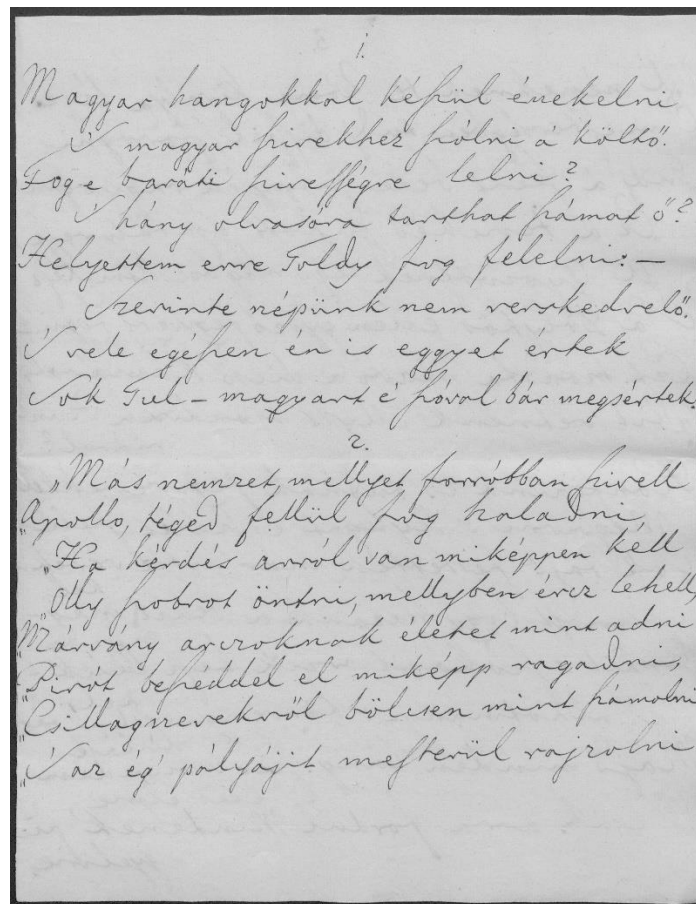 1.
Magyar hangokkal készül énekelni
S magyar szivekhez szólni á költő.
Fog e baráti szivességre lelni?
S hány olvasóra tarthat számot ő?
Helyettem erre Toldy fog felelni: –
Szerinte népünk nem verskedvelő.
S vele egészen én is eggyet értek
Sok Tul – magyart é szóval bár megsértek.
2.
„Más nemzet, mellyet forróbban szivell
„Apollo, téged fellül fog haladni,
„Ha kérdés arról van miképpen kell
„Olly szobrot öntni, mellyben ércz lehell,
„Márvány arczoknak életet mint adni
„Birót beszéddel el miképp ragadni,
„Csillagnevekről bölcsen mint számolni
„S az ég' pályájit mesterül rajzolni